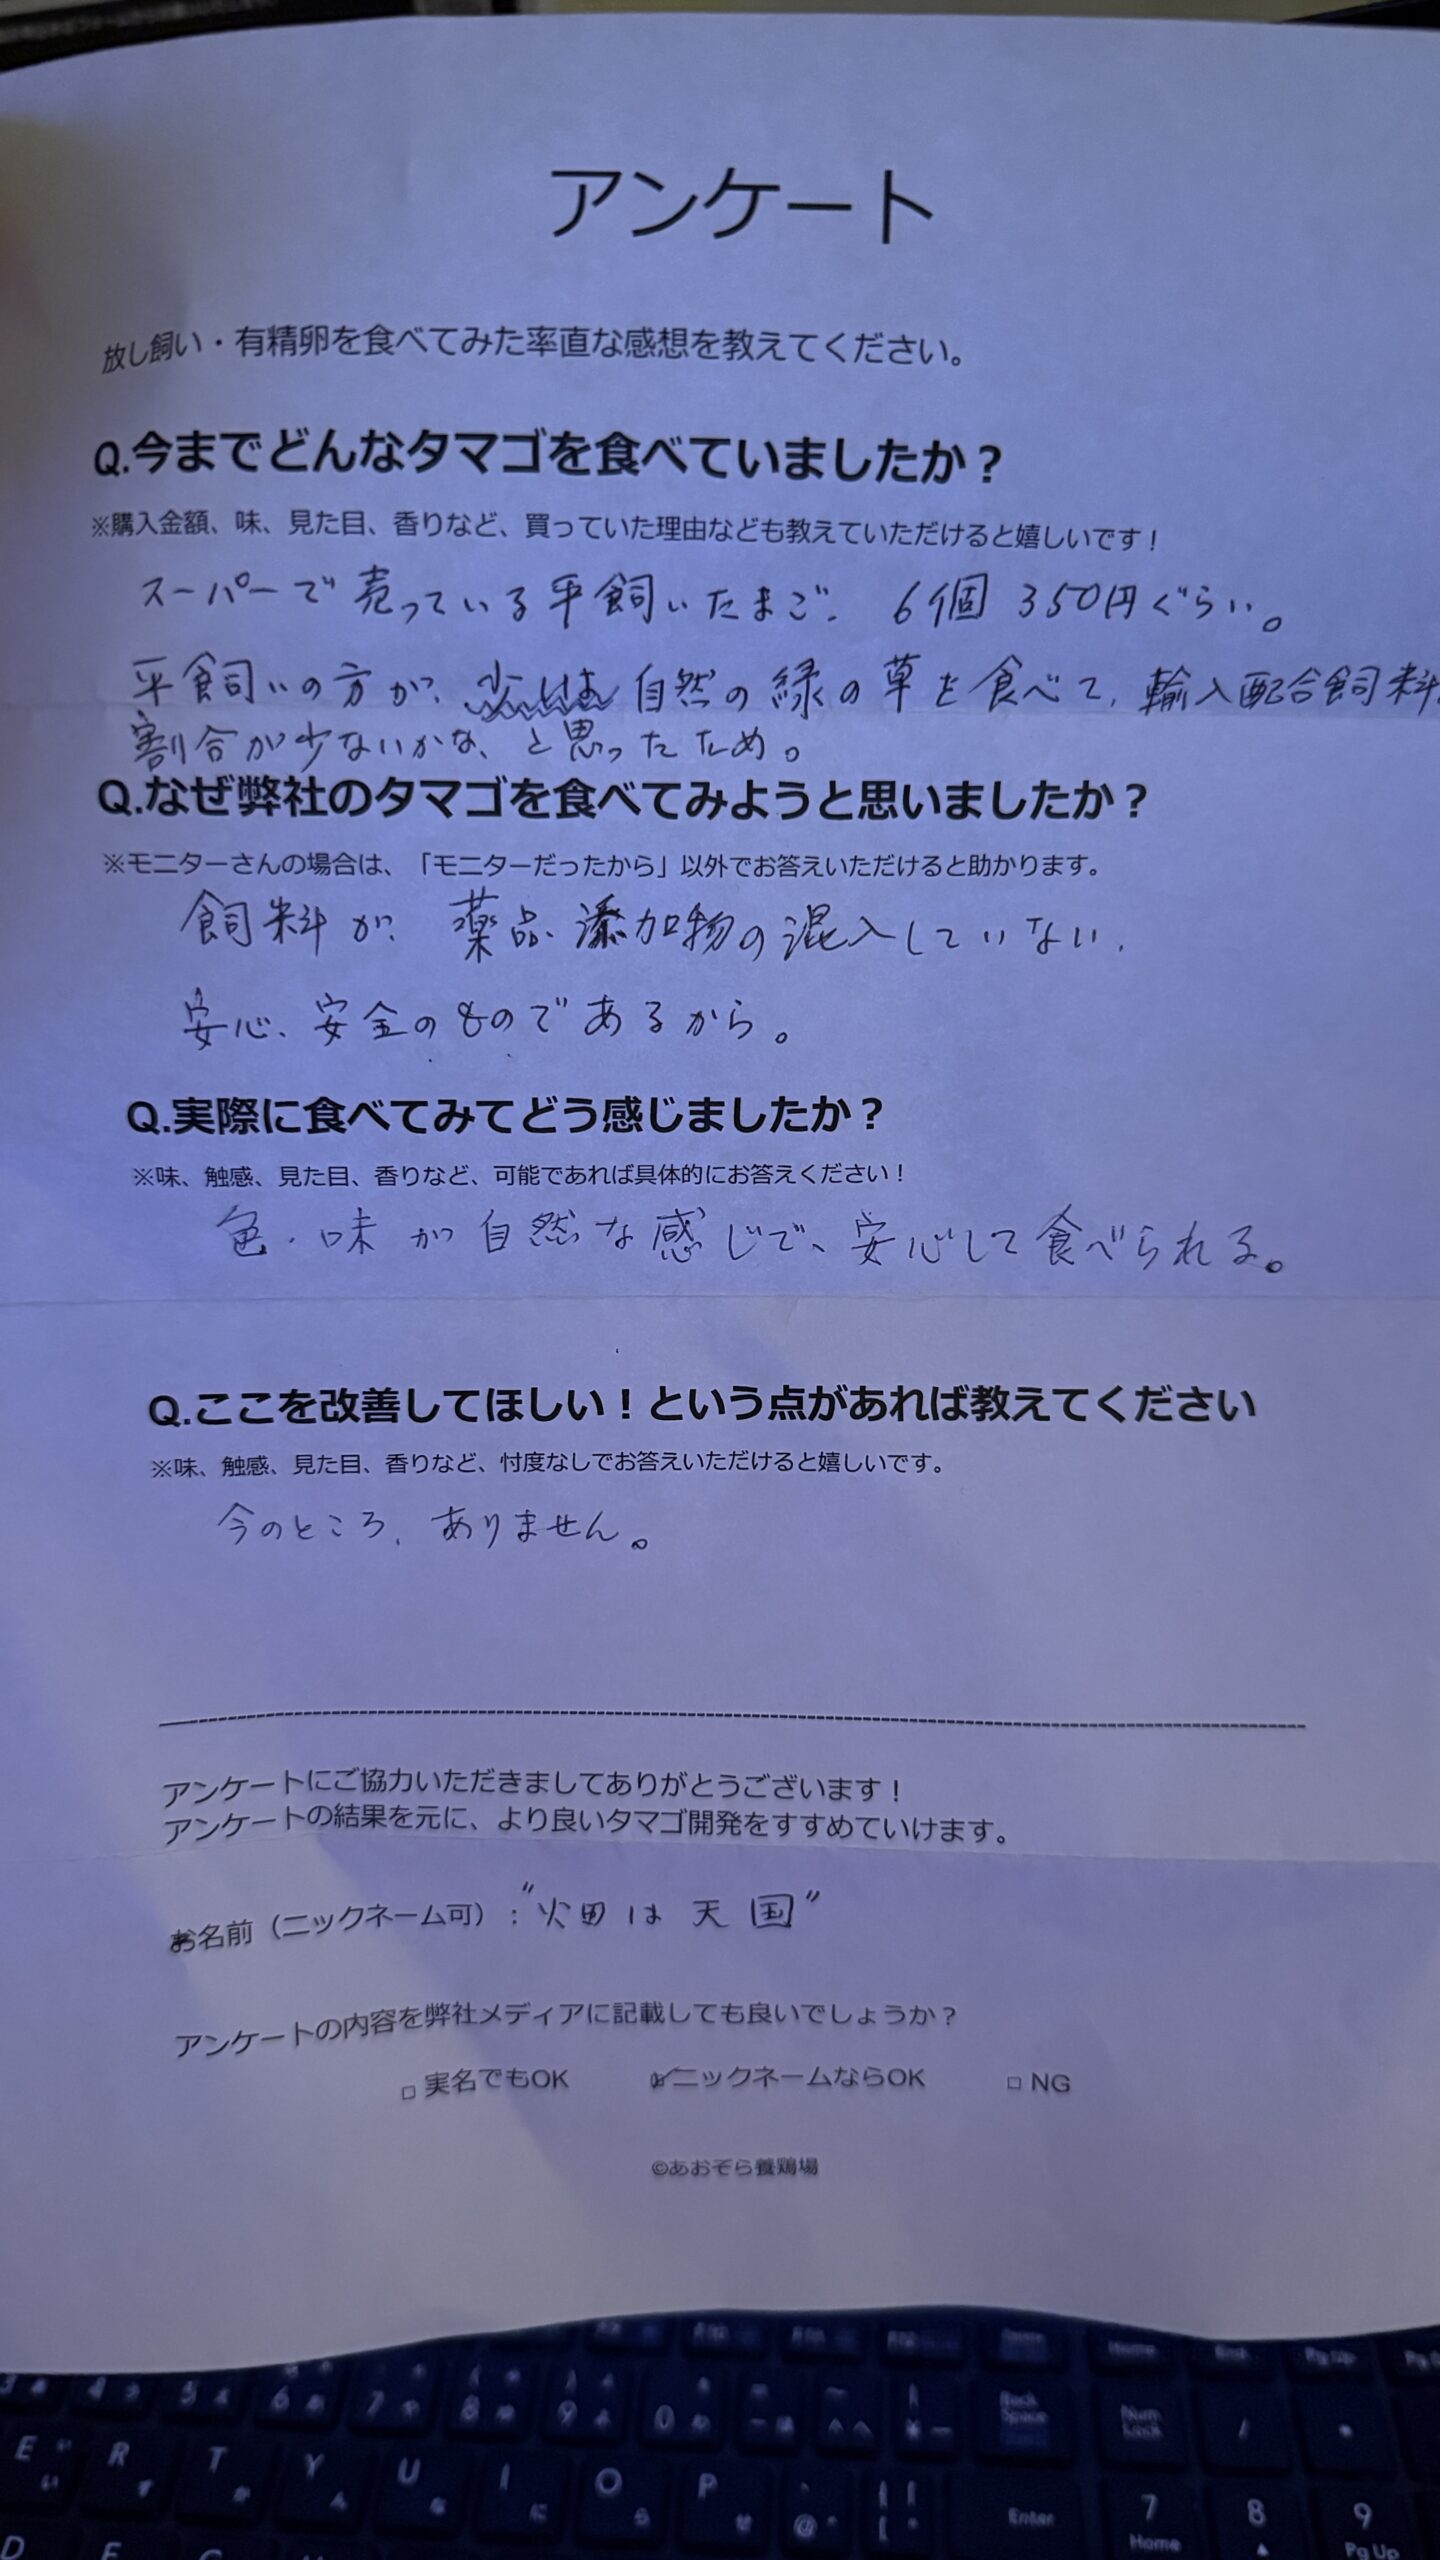 アンケート
放し飼い・有精卵を食べてみた率直な感想を教えてください。
Q.今までどんなタマゴを食べていましたか？
※購入金額、味、見た目、香りなど、買っていた理由なども教えていただけると嬉しいです！
スーパーで売っている平飼いたまご、6個350円ぐらい。
平飼いの方が、自然の緑の草を食べて、輸入配合飼料
割合が少ないかな、と思ったため。
Q.なぜ弊社のタマゴを食べてみようと思いましたか？
※モニターさんの場合は、「モニターだったから」以外でお答えいただけると助かります。
飼料が、薬品・添加物の混入していない、
安心、安全のものであるから。
Q.実際に食べてみてどう感じましたか？
※味、触感、見た目、香りなど、可能であれば具体的にお答えください！
色・味が自然な感じで、安心して食べられる。
Q.ここを改善してほしい！という点があれば教えてください
※味、触感、見た目、香りなど、忖度なしでお答えいただけると嬉しいです。
今のところ、ありません。
アンケートにご協力いただきましてありがとうございます！
アンケートの結果を元に、より良いタマゴ開発をすすめていけます。
お名前（ニックネーム可）："畑は天国"
アンケートの内容を弊社メディアに記載しても良いでしょうか？
□ 実名でもOK ☑ニックネームならOK □ NG
©あおぞら養鶏場
E R T Y U I O P
Back Space
Num Lock
Enter
7 8 9
Home
Pg Up